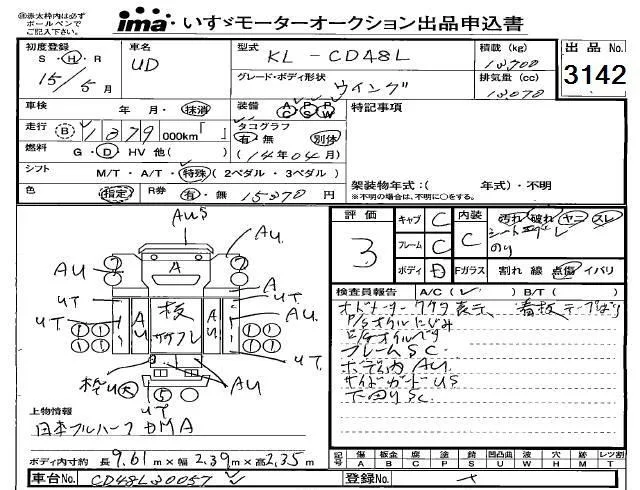 ㊟赤太枠内は必ず
ボールペンで
ご記入下さい。
ima いすゞモーターオークション出品申込書
初度登録
S・H・R
15/5月
車名
UD
型式
KL-CD48L
積載(kg)
13,700
出品No.
3142
グレード・ボディ形状
ウイング
排気量(cc)
13,070
車検
年 月・抹消
装備
A C
P S
P W
特記事項
走行
B
1379
000km「 」
タコグラフ
有・無
別体
燃料
G・D・HV 他( )
(14年04月)
シフト
M/T・A/T・特殊(2ペダル・3ペダル)
色
指定
R券
有・無
15370円
架装物年式:( 年式)・不明
※不明の場合は、不明に○をする。
評価
3
キャブ C
フレーム C
ボディ D
内装
C
汚れ 破れ ヤニ スレ
シート
のり
Fガラス
割れ 線 点傷 イバリ
検査員報告
A/C( ) B/T( )
オドメーター 表示、看板テープ
P/Sオイルにじみ
フレームSC
ボディ内AU
サイドガードUS
下回りSC
AUS
AU
AU
A
AU
AU
A
UT
UT
UT
AU
AU
AU
板
UT
UT
AU
UT
上物情報
日本フルハーフ DMA
ボディ内寸約 長9.61m×幅2.39m×高2.35m
記号
傷 A
板金 B
腐 C
塗 P
錆 S
凹凸曲 U
波 W
穴 H
ヤケ M
レツ割 T
車台No.
CD48L30057
登録No.